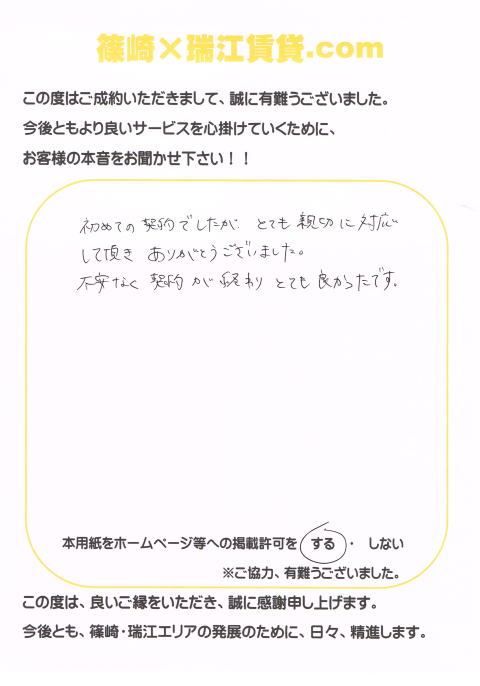 篠崎×瑞江賃貸.com
この度はご成約いただきまして、誠に有難うございました。
今後ともより良いサービスを心掛けていくために、
お客様の本音をお聞かせ下さい!!
初めての契約でしたが とても親切に対応
して頂き ありがとうございました。
不安なく 契約が終わり とても良かったです。
本用紙をホームページ等への掲載許可を する ・ しない
※ご協力、有難うございました。
この度は、良いご縁をいただき、誠に感謝申し上げます。
今後とも、篠崎・瑞江エリアの発展のために、日々、精進します。